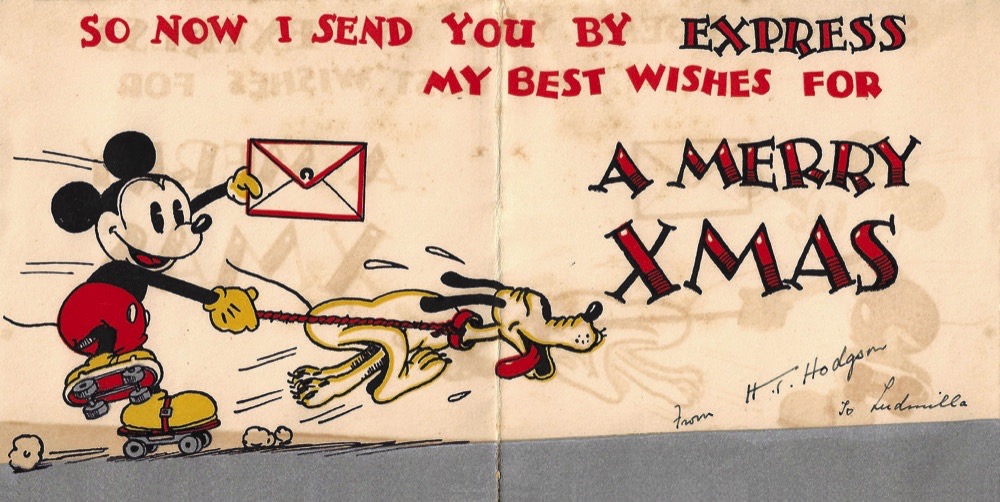 SO NOW I SEND YOU BY EXPRESS
MY BEST WISHES FOR
A MERRY
XMAS
From H. S. Hodgson
To Ludmilla